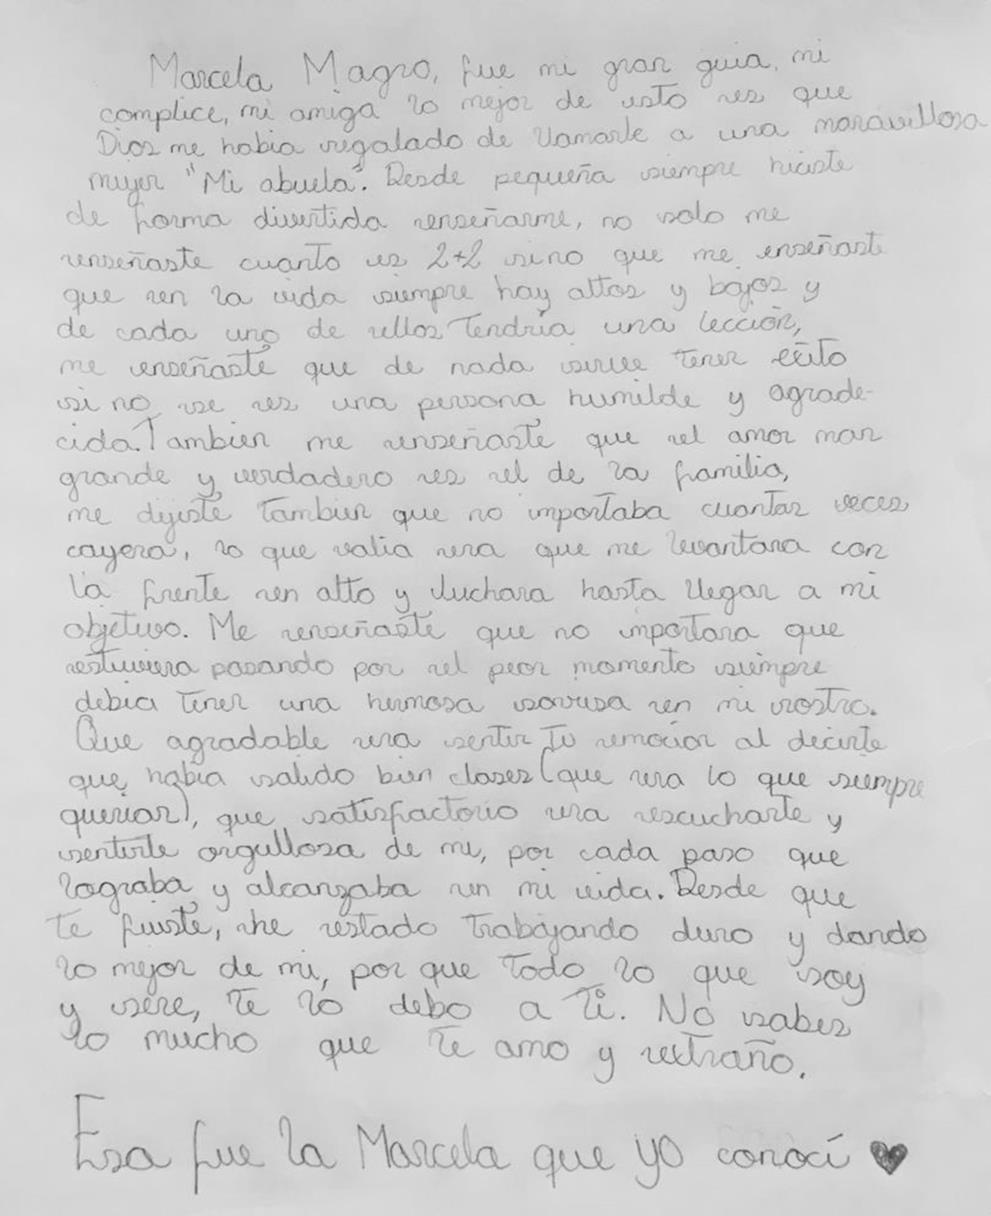 Marcela Magro, fue mi gran guia, mi
complice, mi amiga lo mejor de esto es que
Dios me habia regalado de llamarle a una maravillosa
mujer "Mi abuela". Desde pequeña siempre hiciste
de forma divertida enseñarme, no solo me
enseñaste cuanto es 2+2 sino que me enseñaste
que en la vida siempre hay altos y bajos y
de cada uno de ellos tendría una lección,
me enseñaste que de nada sirve tener exito
si no se es una persona humilde y agrade-
cida. Tambien me enseñaste que el amor mas
grande y verdadero es el de la familia,
me dijiste tambien que no importaba cuantas veces
cayera, lo que valia era que me levantara con
la frente en alto y luchara hasta llegar a mi
objetivo. Me enseñaste que no importara que
estuviera pasando por el peor momento siempre
debia tener una hermosa sonrisa en mi rostro.
Que agradable era sentir tu emocion al decirte
que habia salido bien clases (que era lo que siempre
querias), que satisfactorio era escucharte y
sentirte orgullosa de mi, por cada paso que
lograba y alcanzaba en mi vida. Desde que
te fuiste, he estado trabajando duro y dando
lo mejor de mi, por que todo lo que soy
y sere, te lo debo a ti. No sabes
lo mucho que te amo y extraño.
Esa fue la Marcela que yo conocí